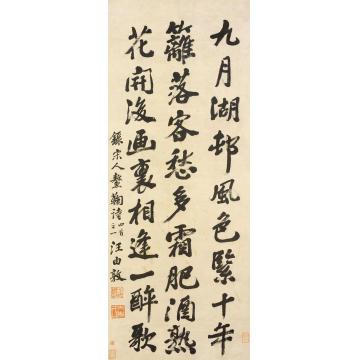 九月湖邨風色緊十年
籬落客愁多霜肥酒熟
花開後画裏相逢一醉歌
錄宋人鼇鞠詩四首之一 汪由敦